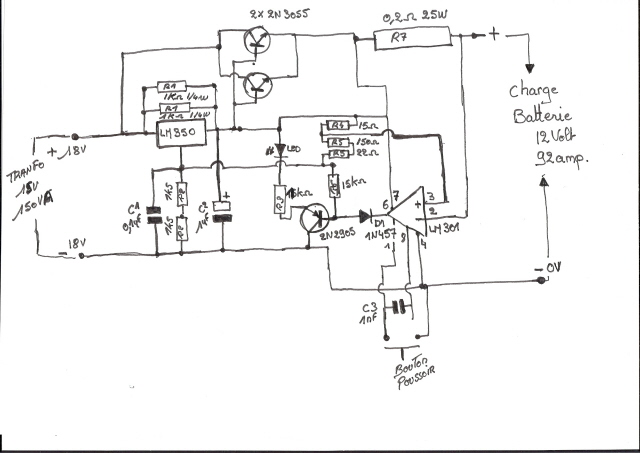 2x 2N3055
0,2Ω 25W
R7
+
Charge
Batterie
12 Volt
92 amp.
R1
1KΩ 1/4W
R1
1KΩ 1/4W
LM350
+ 18V
TRANFO
15V
150VA
LED
R4 15Ω
R5 150Ω
R3 22Ω
15KΩ
15KΩ
C1
0,1µF
1K5
R2
1K5
R2
+
C2
1µF
2N2905
D1
1N457
6
7
+ 3
- 2
LM301
1
8
4
- 18V
- 0V
C3
1nF
BOUTON
POUSSOIR